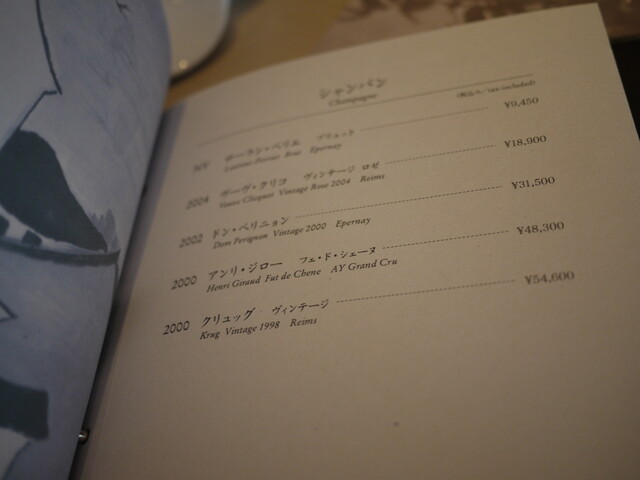 シャンパン
Champagne
(税込み/tax included)
NV ローラン・ペリエ ブリュット ¥9,450
Laurent-Perrier Brut Epernay
2004 ヴーヴ・クリコ ヴィンテージ ロゼ ¥18,900
Veuve Clicquot Vintage Rose 2004 Reims
2002 ドン・ペリニョン ¥31,500
Dom Perignon Vintage 2000 Epernay
2000 アンリ・ジロー フュ・ド・シェーヌ ¥48,300
Henri Giraud Fut de Chene AY Grand Cru
2000 クリュッグ ヴィンテージ ¥54,600
Krug Vintage 1998 Reims